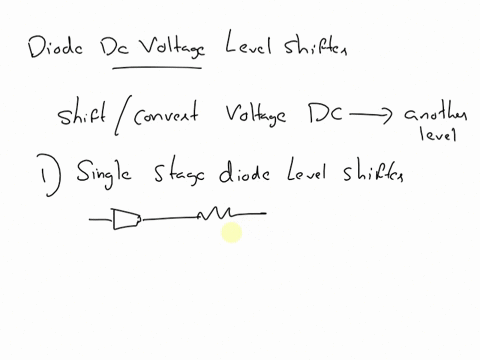 Diode Dc Voltage Level shifter
shift / convert Voltage DC → another level
1) Single stage diode Level shifter